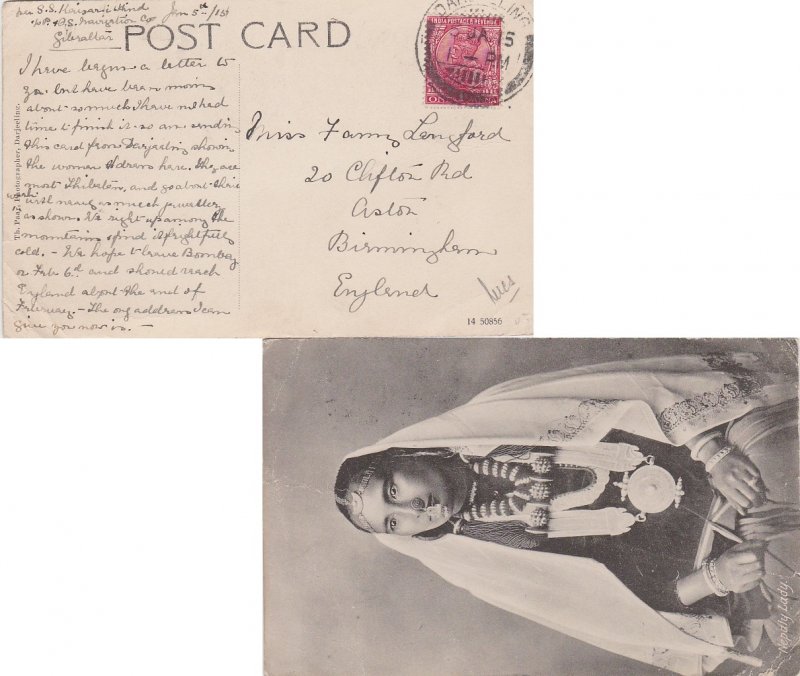 per S.S. Kaisar i Hind Jan 5th/15
P. & O.S. Navigation Co
Gibraltar
POST CARD
DARJEELING
INDIA POSTAGE & REVENUE
5 JA 15
1 - PM
I have begun a letter to
you but have been moving
about so much I have not had
time to finish it so am sending
this card from Darjeeling showing
the women & dress here. They are
most Thibetan, and go about their
work with nearly as much jewellery
as shown. We right up among the
mountains & find it frightfully
cold. - We hope to leave Bombay
on Feb 6th and should reach
England about the end of
February - The only address I can
give you now is. -
Th. Paar, Photographer, Darjeeling.
Miss Fanny Langford
20 Clifton Rd
Aston
Birmingham
England
14 50856
Nepaly Lady.